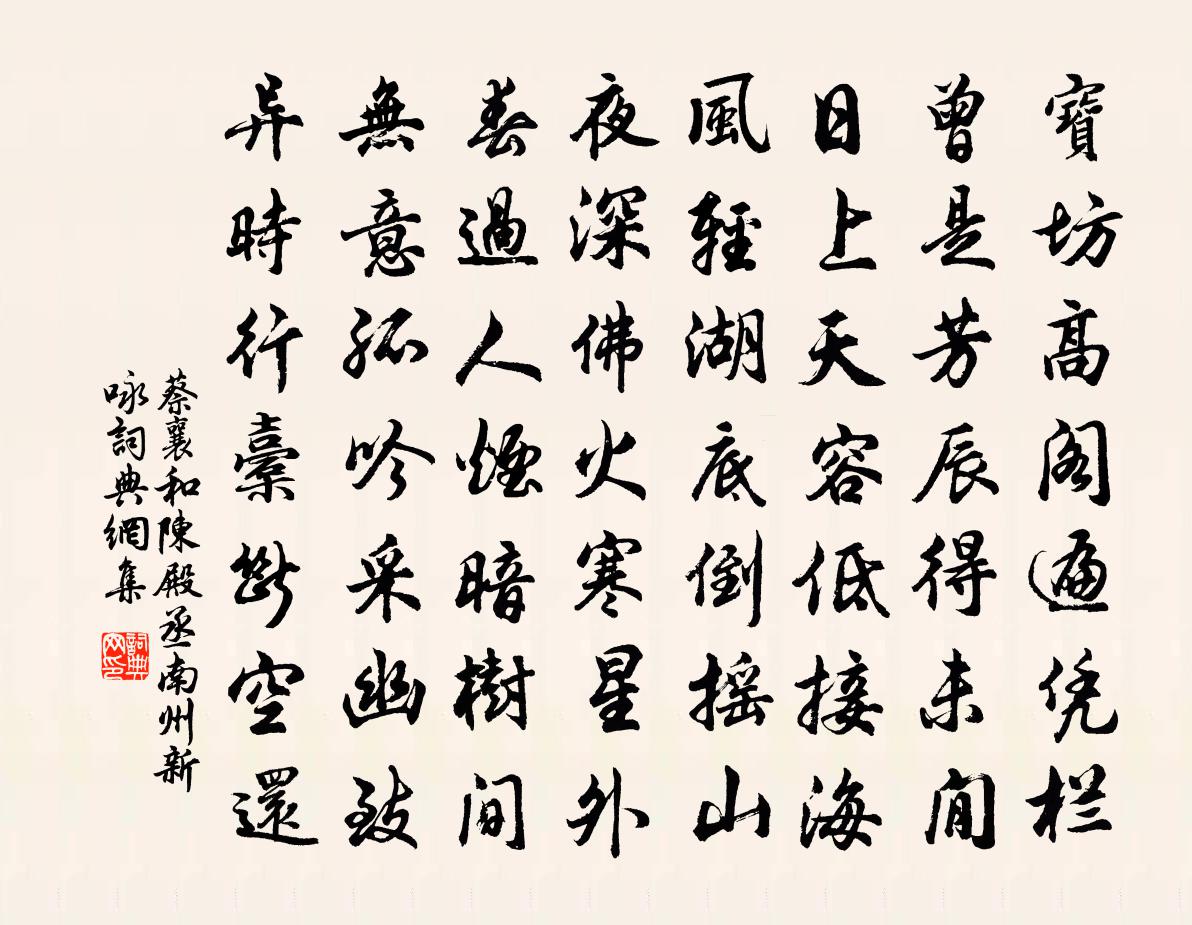 寶坊高阁遍凭栏
曾是芳辰得未閒
日上天容低接海
風輕湖底倒摇山
夜深佛火寒星外
春過人煙暗樹间
無意孤吟采幽致
异時行橐斷空還
蔡襄和陳殿丞南州新
咏詞典網集
詞典网印